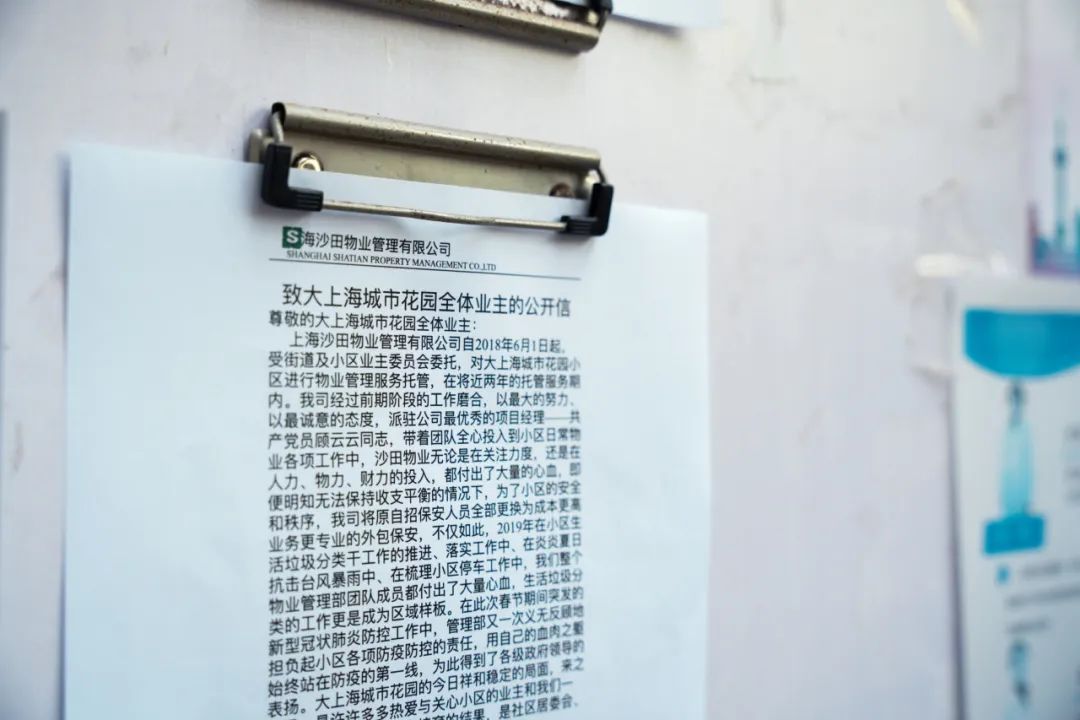 S海沙田物业管理有限公司
SHANGHAI SHATIAN PROPERTY MANAGEMENT CO.,LTD
致大上海城市花园全体业主的公开信
尊敬的大上海城市花园全体业主：
上海沙田物业管理有限公司自2018年6月1日起，
受街道及小区业主委员会委托，对大上海城市花园小
区进行物业管理服务托管，在将近两年的托管服务期
内。我司经过前期阶段的工作磨合，以最大的努力、
以最诚意的态度，派驻公司最优秀的项目经理——共
产党员顾云云同志，带着团队全心投入到小区日常物
业各项工作中，沙田物业无论是在关注力度，还是在
人力、物力、财力的投入，都付出了大量的心血，即
便明知无法保持收支平衡的情况下，为了小区的安全
和秩序，我司将原自招保安人员全部更换为成本更高
业务更专业的外包保安，不仅如此，2019年在小区生
活垃圾分类干工作的推进、落实工作中、在炎炎夏日
抗击台风暴雨中、在梳理小区停车工作中，我们整个
物业管理部团队成员都付出了大量心血，生活垃圾分
类的工作更是成为区域样板。在此次春节期间突发的
新型冠状肺炎防控工作中，管理部又一次义无反顾地
担负起小区各项防疫防控的责任，用自己的血肉之躯
始终站在防疫的第一线，为此得到了各级政府领导的
表扬。大上海城市花园的今日祥和稳定的局面，来之
是许许多多热爱与关心小区的业主和我们一
的结果，是社区居委会、